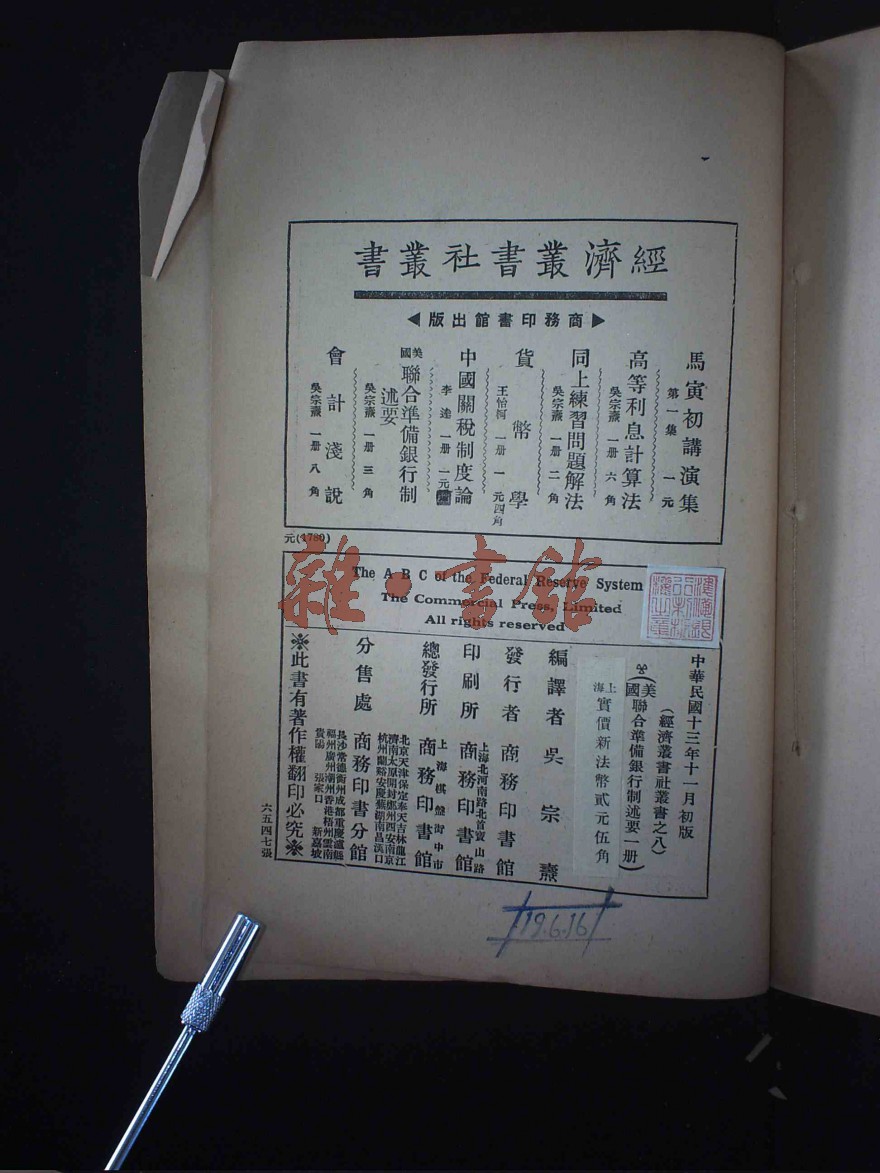 經濟叢書社叢書
商務印書館出版
馬寅初講演集
第一集 一元
高等利息計算法
吳宗燾 一册 六角
同上練習問題解法
吳宗燾 一册 二角
貨幣學
王怡柯 一册 一元四角
中國關稅制度論
李達 一册 一元
美國聯合準備銀行制述要
吳宗燾 一册 三角
會計淺說
吳宗燾 一册 八角
元(1780)
The A B C of the Federal Reserve System
The Commercial Press, Limited
All rights reserved
中華民國十三年十一月初版
(經濟叢書社叢書之八)
(美國聯合準備銀行制述要一册)
上海實價新法幣貳元伍角
編譯者 吳宗燾
發行者 商務印書館
印刷所 上海北河南路北首寶山路 商務印書館
總發行所 上海棋盤街中市 商務印書館
分售處 商務印書分館
北京天津保定奉天吉林龍江
濟南太原開封鄭州西安南京
杭州蘭谿安慶蕪湖南昌漢口
長沙常德衡州成都重慶瀘縣
福州廣州潮州香港梧州雲南
貴陽 張家口 新嘉坡
※此書有著作權翻印必究※
六五四七張
雜·書館
19.6.16